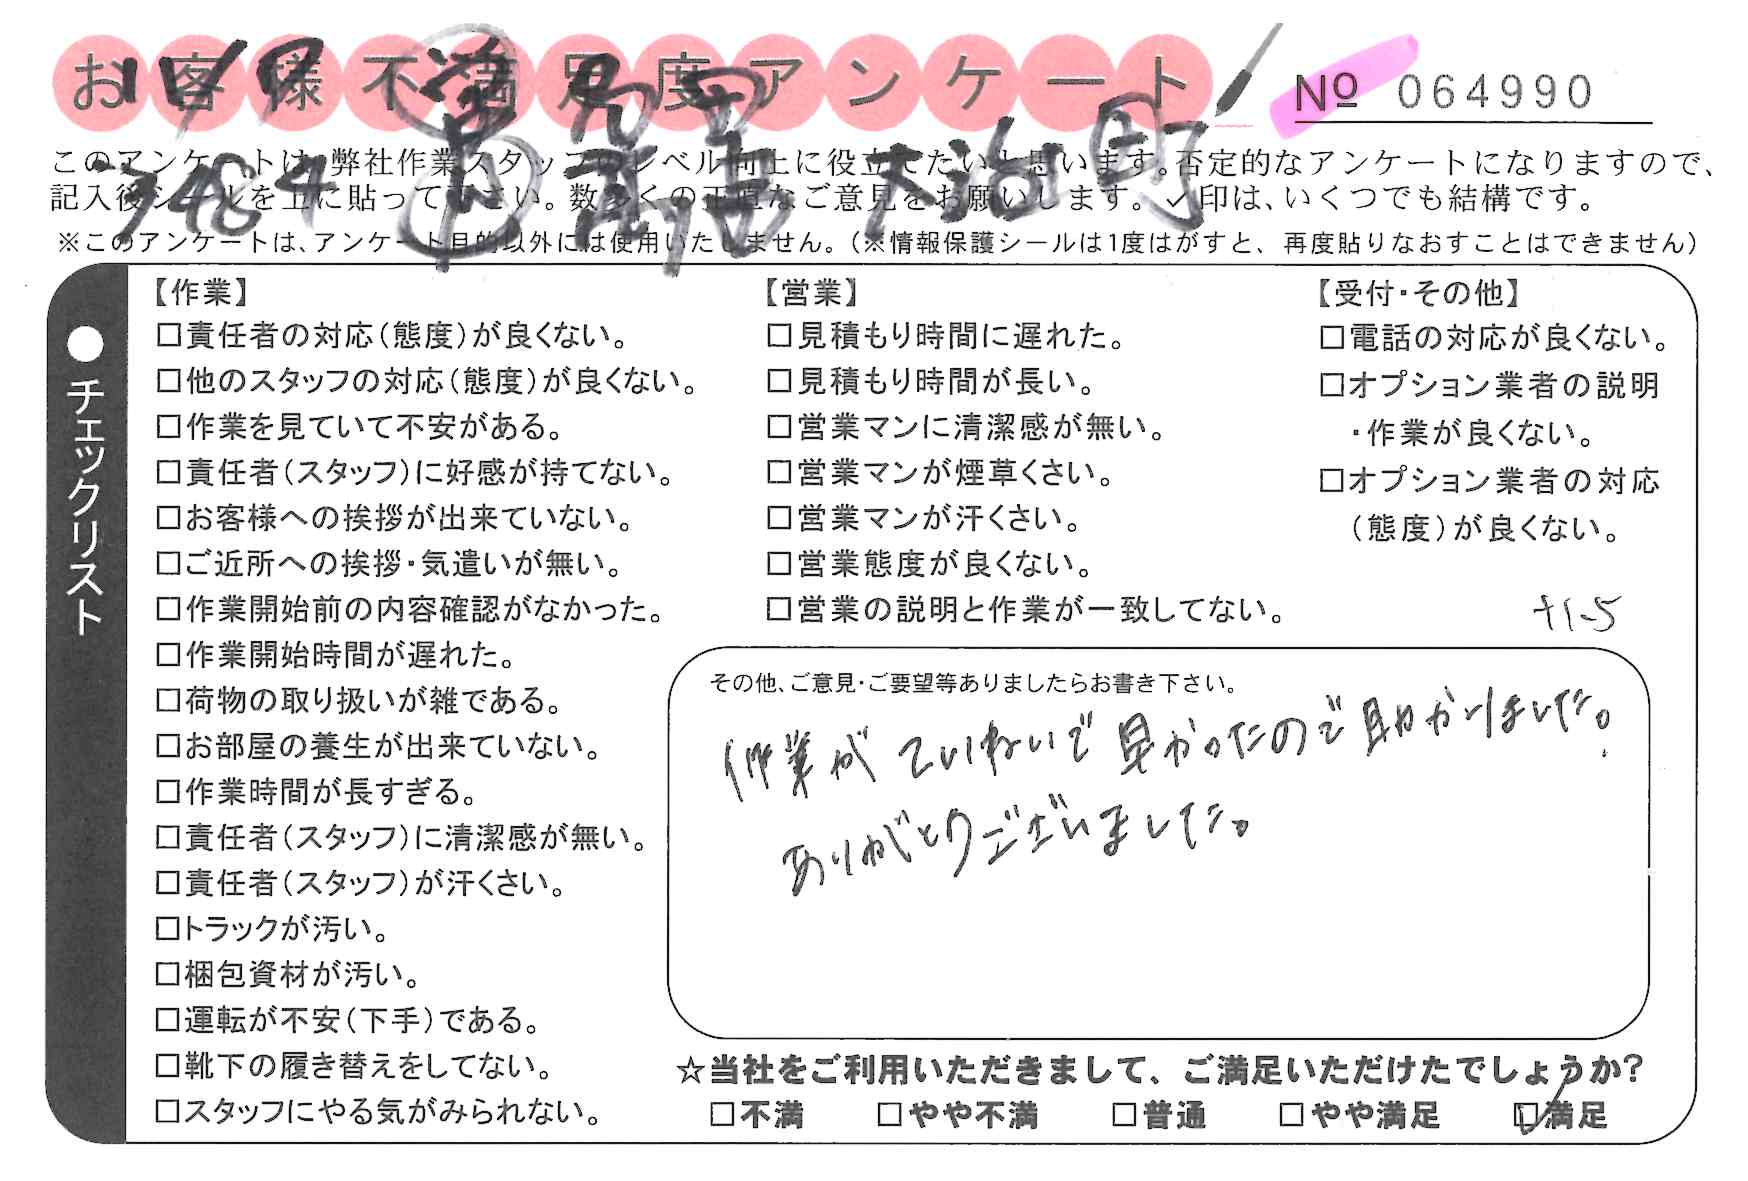 お客様不満足度アンケート
№ 064990
このアンケートは、弊社作業スタッフのレベル向上に役立てたいと思います。否定的なアンケートになりますので、
記入後シールを上に貼って下さい。数多くの正直なご意見をお願いします。✓印は、いくつでも結構です。
※このアンケートは、アンケート目的以外には使用いたしません。（※情報保護シールは1度はがすと、再度貼りなおすことはできません）
●チェックリスト
【作業】
□責任者の対応（態度）が良くない。
□他のスタッフの対応（態度）が良くない。
□作業を見ていて不安がある。
□責任者（スタッフ）に好感が持てない。
□お客様への挨拶が出来ていない。
□ご近所への挨拶・気遣いが無い。
□作業開始前の内容確認がなかった。
□作業開始時間が遅れた。
□荷物の取り扱いが雑である。
□お部屋の養生が出来ていない。
□作業時間が長すぎる。
□責任者（スタッフ）に清潔感が無い。
□責任者（スタッフ）が汗くさい。
□トラックが汚い。
□梱包資材が汚い。
□運転が不安（下手）である。
□靴下の履き替えをしてない。
□スタッフにやる気がみられない。
【営業】
□見積もり時間に遅れた。
□見積もり時間が長い。
□営業マンに清潔感が無い。
□営業マンが煙草くさい。
□営業マンが汗くさい。
□営業態度が良くない。
□営業の説明と作業が一致してない。
【受付・その他】
□電話の対応が良くない。
□オプション業者の説明
・作業が良くない。
□オプション業者の対応
（態度）が良くない。
その他、ご意見・ご要望等ありましたらお書き下さい。
作業がていねいで早かったので助かりました。
ありがとうございました。
☆当社をご利用いただきまして、ご満足いただけたでしょうか?
□不満 □やや不満 □普通 □やや満足 ☑満足